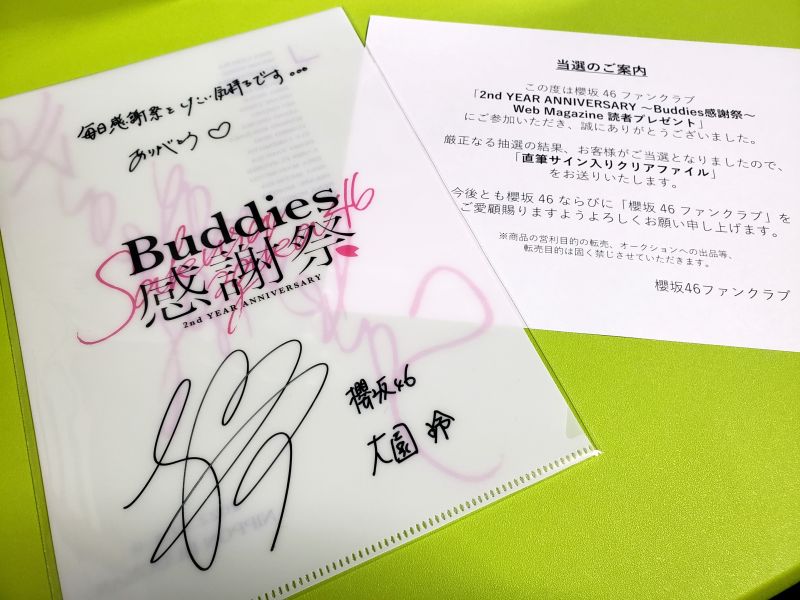 毎日感謝祭をしたい気持ちです...
ありがとう♡
Buddies
Sakurazaka46
感謝祭
2nd YEAR ANNIVERSARY
櫻坂46
大園 玲
当選のご案内
この度は櫻坂 46 ファンクラブ
「2nd YEAR ANNIVERSARY ～Buddies感謝祭～
Web Magazine 読者プレゼント」
にご参加いただき、誠にありがとうございました。
厳正なる抽選の結果、お客様がご当選となりましたので、
「直筆サイン入りクリアファイル」
をお送りいたします。
今後とも櫻坂 46 ならびに「櫻坂 46 ファンクラブ」を
ご愛顧賜りますようよろしくお願い申し上げます。
※商品の営利目的の転売、オークションへの出品等、
転売目的は固く禁じさせていただきます。
櫻坂46ファンクラブ